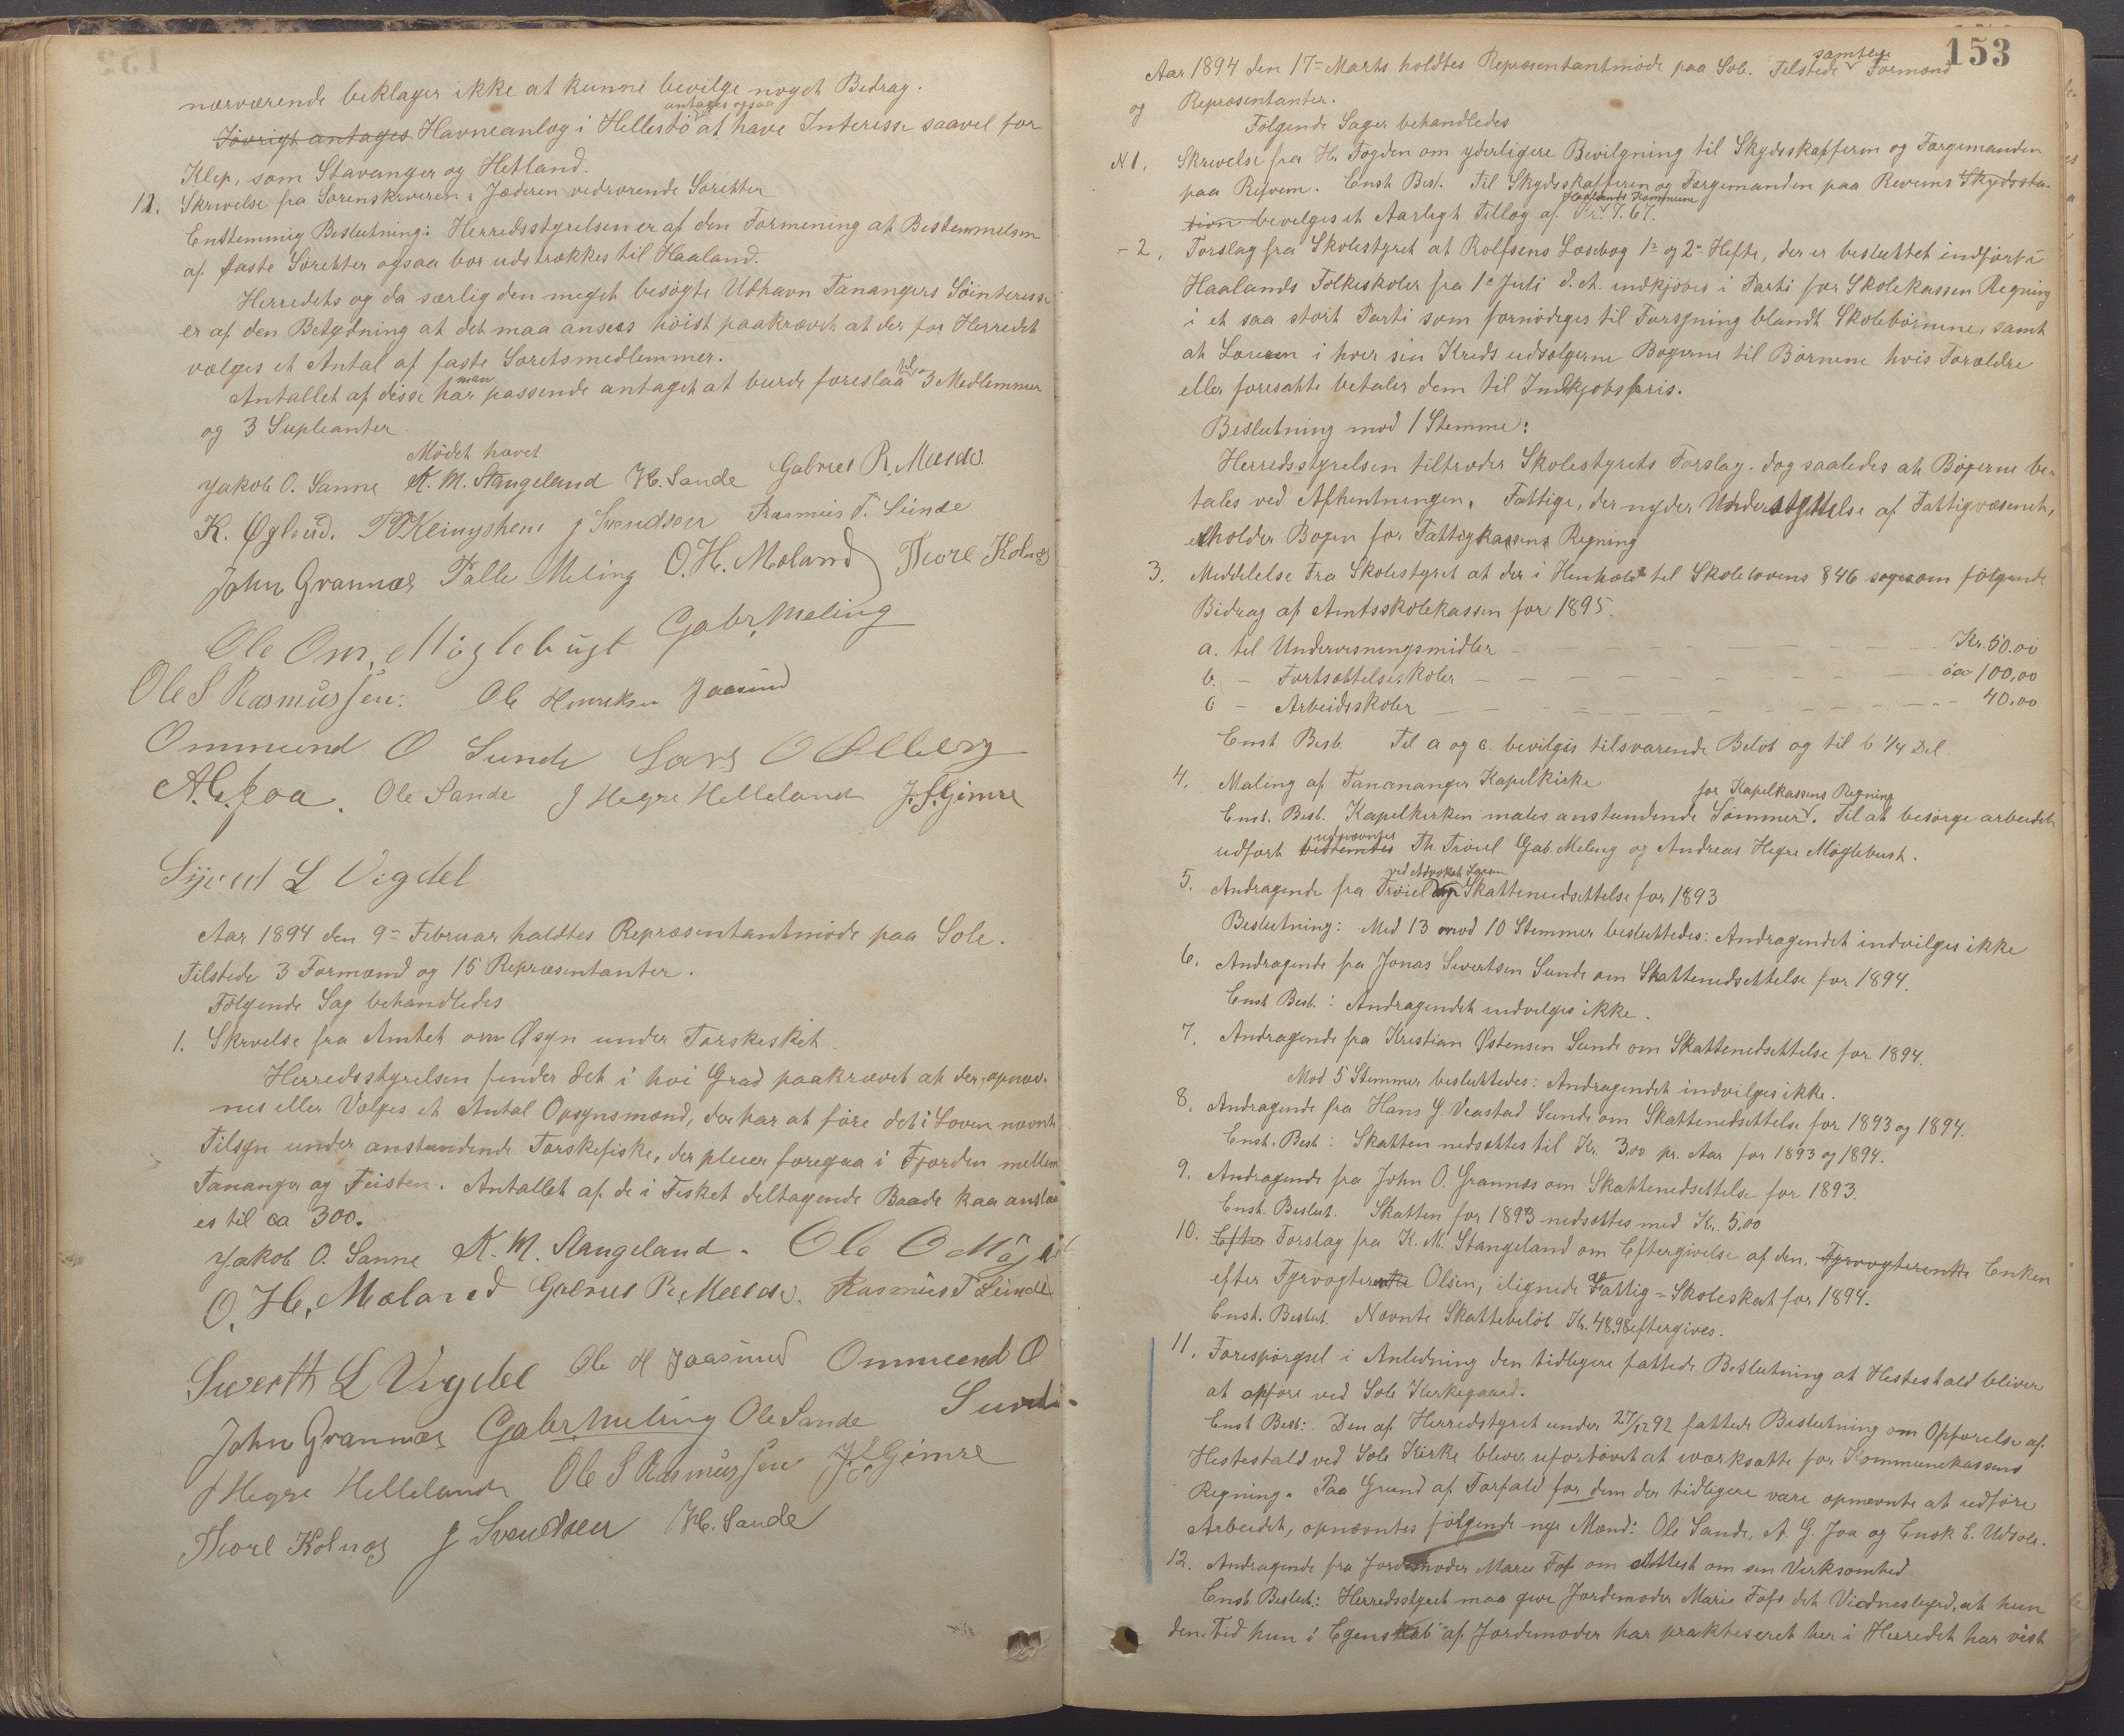 nærværende beklager ikke at kunne bevilge noget Bedrag.
Iøvrigt antages Havneanlæg i Hellestø antages ogsaa at have Interesse saavel for
Klep, som Stavanger og Hetland.
11. Skrivelse fra Sorenskriveren i Jæderen vedrørende Søretter
Enstemmig Beslutning: Herredsstyrelsen er af den Formening at Bestemmelsen
af faste Søretter ogsaa bør udstrækkes til Haaland.
Herredets og da særlig den meget besøgte Udhavn Tanangers Søinteresse
er af den Betydning at det maa ansees høist paakrævet at der for Herredet
vælges et Antal af faste Søretsmedlemmer.
Antallet af disse har man passende antaget at burde foreslaa til 3 Medlemmer
og 3 Supleanter.
Mødet hævet
Jakob O. Sanne K. M. Stangeland H. Sande Gabriel R. Mælde
K. Øglænd. J Svendsen Rasmus T. Sunde
John Grannæs Talle Meling O. H. Moland Thore Kolnes
Ole Om. Møglebust Gabr. Meling
Ole S Rasmussen. Ole Henriksen Joasund
Ommund O Sunde Lars O
A. G. Joa. Ole Sande J Hegre Helleland J. S. Gimre
L Vigdel
Aar 1894 den 9= Februar holdtes Repræsentantmøde paa Sole.
Tilstede 3 Formænd og 15 Repræsentanter.
Følgende Sag behandledes
1. Skrivelse fra Amtet om Opsyn under Torskefisket.
Herredsstyrelsen finder det i høi Grad paakrævet at der opnæv-
nes eller Vælges et Antal Opsynsmænd, der har at føre det i Loven nævnte
Tilsyn under anstundende Torskefiske, der pleier foregaa i Fjorden mellem
Tananger og Feisten. Antallet af de i Fisket deltagende Baade kan anslaa-
es til ca 300.
Jakob O. Sanne K. M. Stangeland. Ole O
O. H. Moland Gabriel R. Mælde. Rasmus T Sunde
Sivert L Vigdel Ole H Joasund Ommund O
Sunde
John Grannæs Gabr Meling Ole Sande
J Hegre Helleland Ole S Rasmussen J. S. Gimre
Thore Kolnes J Svendsen H. Sande
153
Aar 1894 den 17= Marts holdtes Repræsentantmøde paa Sole. Tilstede samtlige Formænd
og Repræsentanter.
Følgende Sager behandledes
N 1. Skrivelse fra H. Fogden om yderligere Bevilgning til Skydsskafferen og Færgemanden
paa Refvem. Enst Besl. Til Skydsskafferen og Færgemanden paa Revems Skydssta-
tion bevilges et Aarligt Tillæg af Haalands Kommune Kr. 7.67.
- 2. Forslag fra Skolestyret at Rolfsens Læsebog 1= og 2= Hefte, der er besluttet indført i
Haalands Folkeskoler fra 1= Juli d. A. indkjøbes i Parti for Skolekassen Regning
i et saa stort Parti som fornødiges til Forsyning blandt Skolebørnene, samt
at Læreren i hver sin Kreds udsælgerne Bøgerne til Børnene hvis Forældre
eller foresatte betaler dem til Indkjøbspris.
Beslutning mod 1 Stemme:
Herredsstyrelsen tiltræder Skolestyrets Forslag. dog saaledes at Bøgerne be-
tales ved Afhentningen. Fattige, der nyder Understøttelse af Fattigvæsenet,
erholder Bogen for Fattigkassens Regning
3. Meddelelse Fra Skolestyret at der i Henhold til Skolelovens § 46 søges om følgende
Bidrag af Amtsskolekassen for 1895.
a. til Undervisningsmidler — Kr. 50.00
b. - Fortsættelseskoler — 100,00
c - Arbeidsskoler — 40,00
Enst Besl. Til a og c. bevilges tilsvarende Beløb og til b ¼ Del.
4. Maling af Tanananger Kapelkirke
Enst. Besl. Kapelkirken males anstundende Sommer for Kapelkassens Regning. Til at besørge arbeidet
udført bestemtes udnævntes Th. Trøiel Gab. Meling og Andreas Hegre Møglebust.
5. Andragende fra Trøiel ved Advokat om Skattenedsettelse for 1893
Beslutning: Med 13 mod 10 Stemmer besluttedes: Andragendet indvilges ikke
6. Andragende fra Jonas Sivertsen Sunde om Skattenedsettelse for 1894.
Enst Besl.: Andragendet indvilges ikke.
7. Andragende fra Kristian Østensen Sunde om Skattenedsettelse for 1894.
Mod 5 Stemmer besluttedes: Andragendet indvilges ikke.
8. Andragende fra Hans G. Veastad Sunde om Skattenedsettelse for 1893 og 1894.
Enst. Besl: Skatten nedsættes til Kr. 3,00 pr. Aar for 1893 og 1894.
9. Andragende fra John O. Grannæs om Skattenedsettelse for 1893.
Enst. Beslut. Skatten for 1893 nedsættes med Kr. 5,00
10. Efter Forslag fra K. M. Stangeland om Eftergivelse af den, Fyrvogterenke Enken
efter Fyrvogter Olsen, ilignede Fattig = Skoleskat for 1894.
Enst. Beslut. Nævnte Skattebeløb Kr. 48.98 eftergives.
11. Forespørgsel i Anledning den tidligere fattede Beslutning at Hestestald bliver
at opføre ved Sole Kirkegaard.
Enst Besl: Den af Herredstyret under 27/12 92 fattede Beslutning om Opførelse af
Hestestald ved Sole Kirke bliver ufortøvet at iværksætte for Kommunekassens
Regning. Paa Grund af Forfald for dem der tidligere være opnævnte at udføre
Arbeidet, opnævntes følgende nye Mænd: Ole Sande, A. G. Joa og Enok E. Udsole.
12. Andragende fra Jordemoder Marie Fos om Attest om sin Virksomhed
Enst. Beslut.: Herredsstyret maa give Jordemoder Marie Fofs det Vidnesbyrd, at hun
den Tid hun i Egenskab af Jordemoder har praktiseret her i Herredet har vist